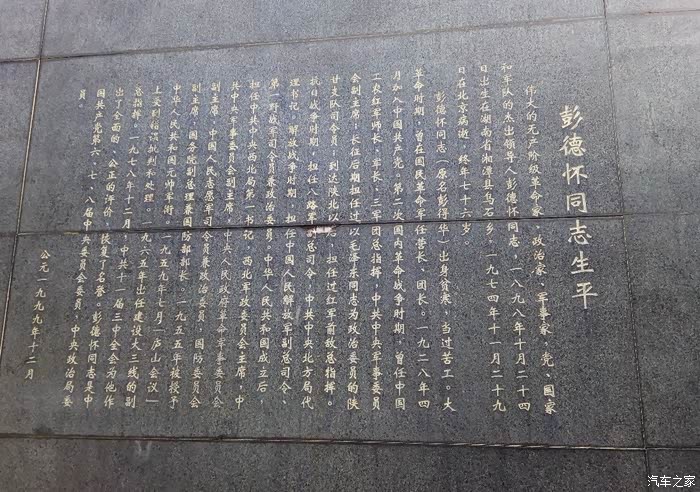 彭德怀同志生平
伟大的无产阶级革命家、政治家、军事家，党、国家
和军队的杰出领导人彭德怀同志，一八九八年十月二十四
日出生在湖南省湘潭县乌石乡，一九七四年十一月二十九
日在北京病逝，终年七十六岁。
彭德怀同志（原名彭得华）出身贫寒，当过苦工。大
革命时期，曾在国民革命军任营长、团长。一九二八年四
月加入中国共产党。第二次国内革命战争时期，曾任中国
工农红军师长、军长、三军团总指挥，中共中央军事委员
会副主席；长征后期担任过以毛泽东同志为政治委员的陕
甘支队司令员，到达陕北以后，担任过红军前敌总指挥。
抗日战争时期，担任八路军副总司令，中共中央北方局代
理书记。解放战争时期，担任中国人民解放军副总司令、
第一野战军司令员兼政治委员，中华人民共和国成立后，
担任中共中央西北局第一书记，西北军政委员会主席，中
共中央军事委员会副主席，中央人民政府革命军事委员会
副主席，中国人民志愿军司令员兼政治委员，国防委员会
副主席，国务院副总理兼国防部部长，一九五五年被授予
中华人民共和国元帅军衔，一九五九年七月"庐山会议"
上受到错误批判和处理。一九六五年出任建设大三线的副
总指挥，一九七八年十二月，中共十一届三中全会为他作
出了全面的、公正的评价，恢复了名誉。彭德怀同志是中
国共产党第六、七、八届中央委员会委员，中央政治局委
员。
公元一九九九年十二月
汽车之家